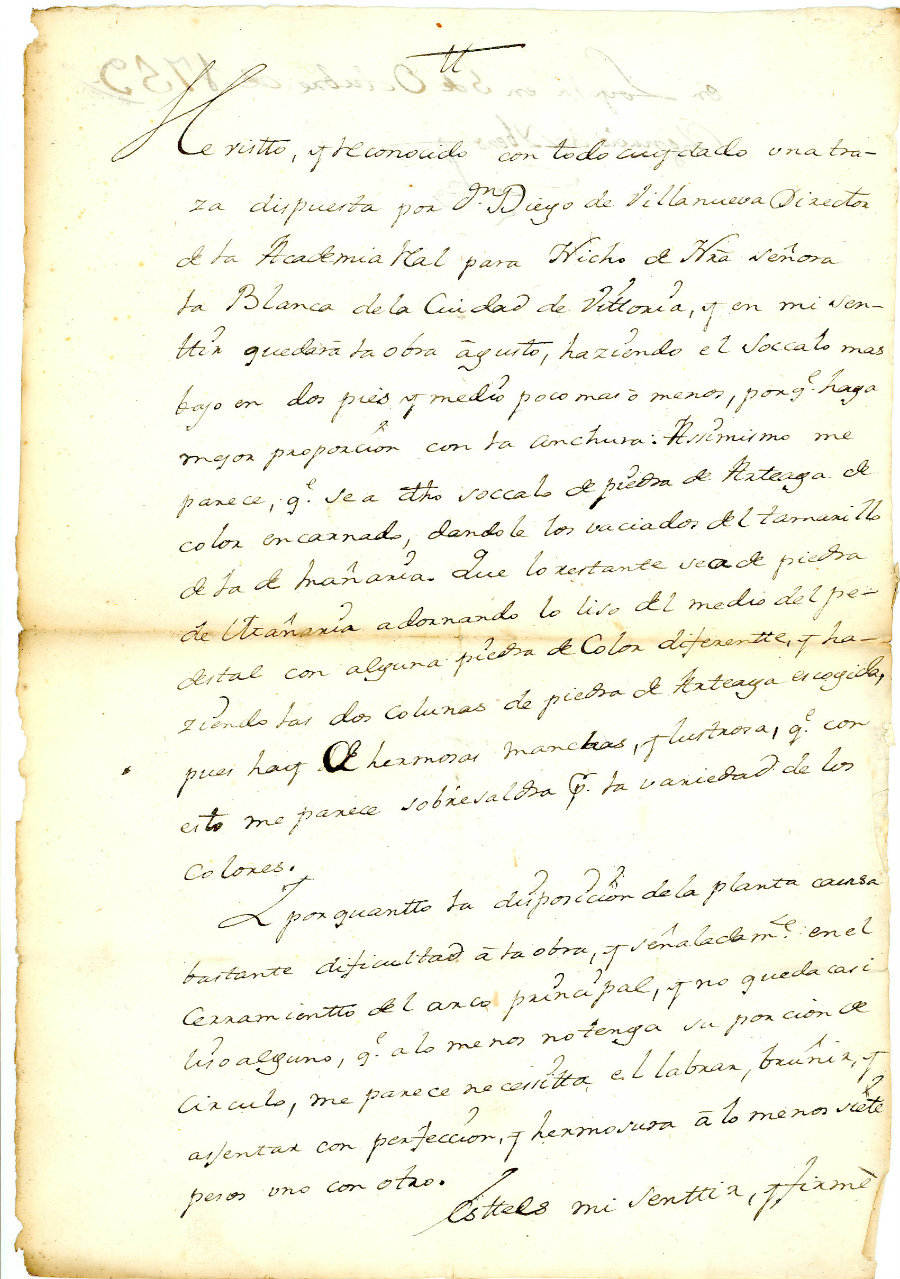 He vistto, y reconocido con todo cuydado una tra-
za dispuesta por Dn Diego de Villanueva Director
de la Academia Ral para Nicho de Nra Señora
la Blanca de la Ciudad de Vittoria, y en mi sen-
ttir quedarà la obra à gusto, haziendo el soccalo mas
bajo en dos pies y medio poco mas ò menos, porqe. haga
mejor proporcion con la anchura. Assimismo me
parece, qe. sea dho soccalo de piedra de Arteaga de
color encarnado, dandole los vaciados del tamarillo
de la de Mañaria. Que lo restante sea de piedra
de Mañaria adornando lo liso del medio del pe-
destal con alguna piedra de Color diferentte, y ha-
ziendo las dos colunas de piedra de Arteaga escogida,
pues hay de hermosas manchas, y lustrosa, qe. con
esto me parece sobresaldra pr. la variedad de los
colores.
Y por quantto la disposicion de la planta causa
bastante dificultad à la obra, y señaladamte. en el
cerramientto del arco principal, y no queda casi
liso alguno, qe. a lo menos no tenga su porcion de
circulo, me parece necessitta el labrar, bruñir, y
assentar con perfeccion, y hermosura à lo menos siete
pesos uno con otro.
Estte es mi senttir, y firmè
en Loyola en 5 de Octubre de 1759